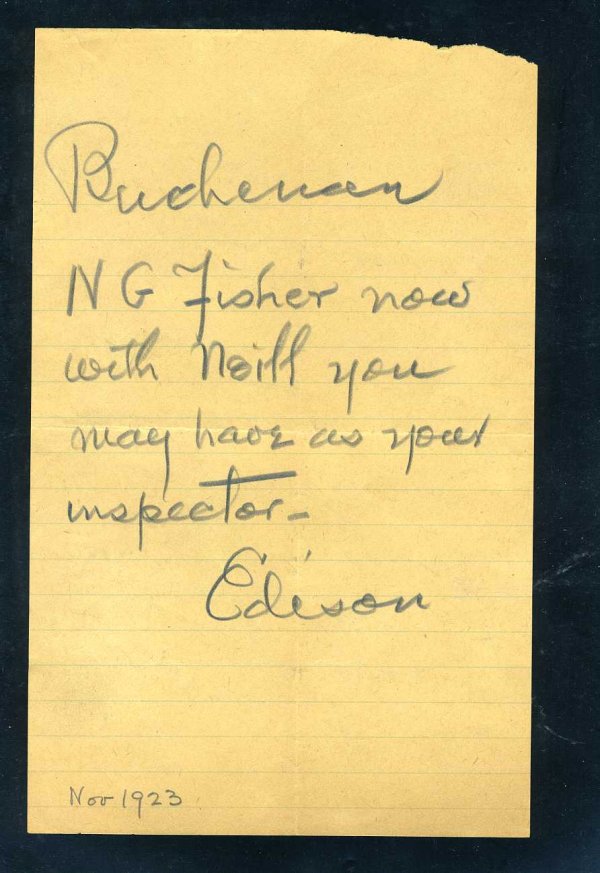 Buchenan
N G Fisher now
with Neill you
may have as your
inspector-
Edison
Nov 1923